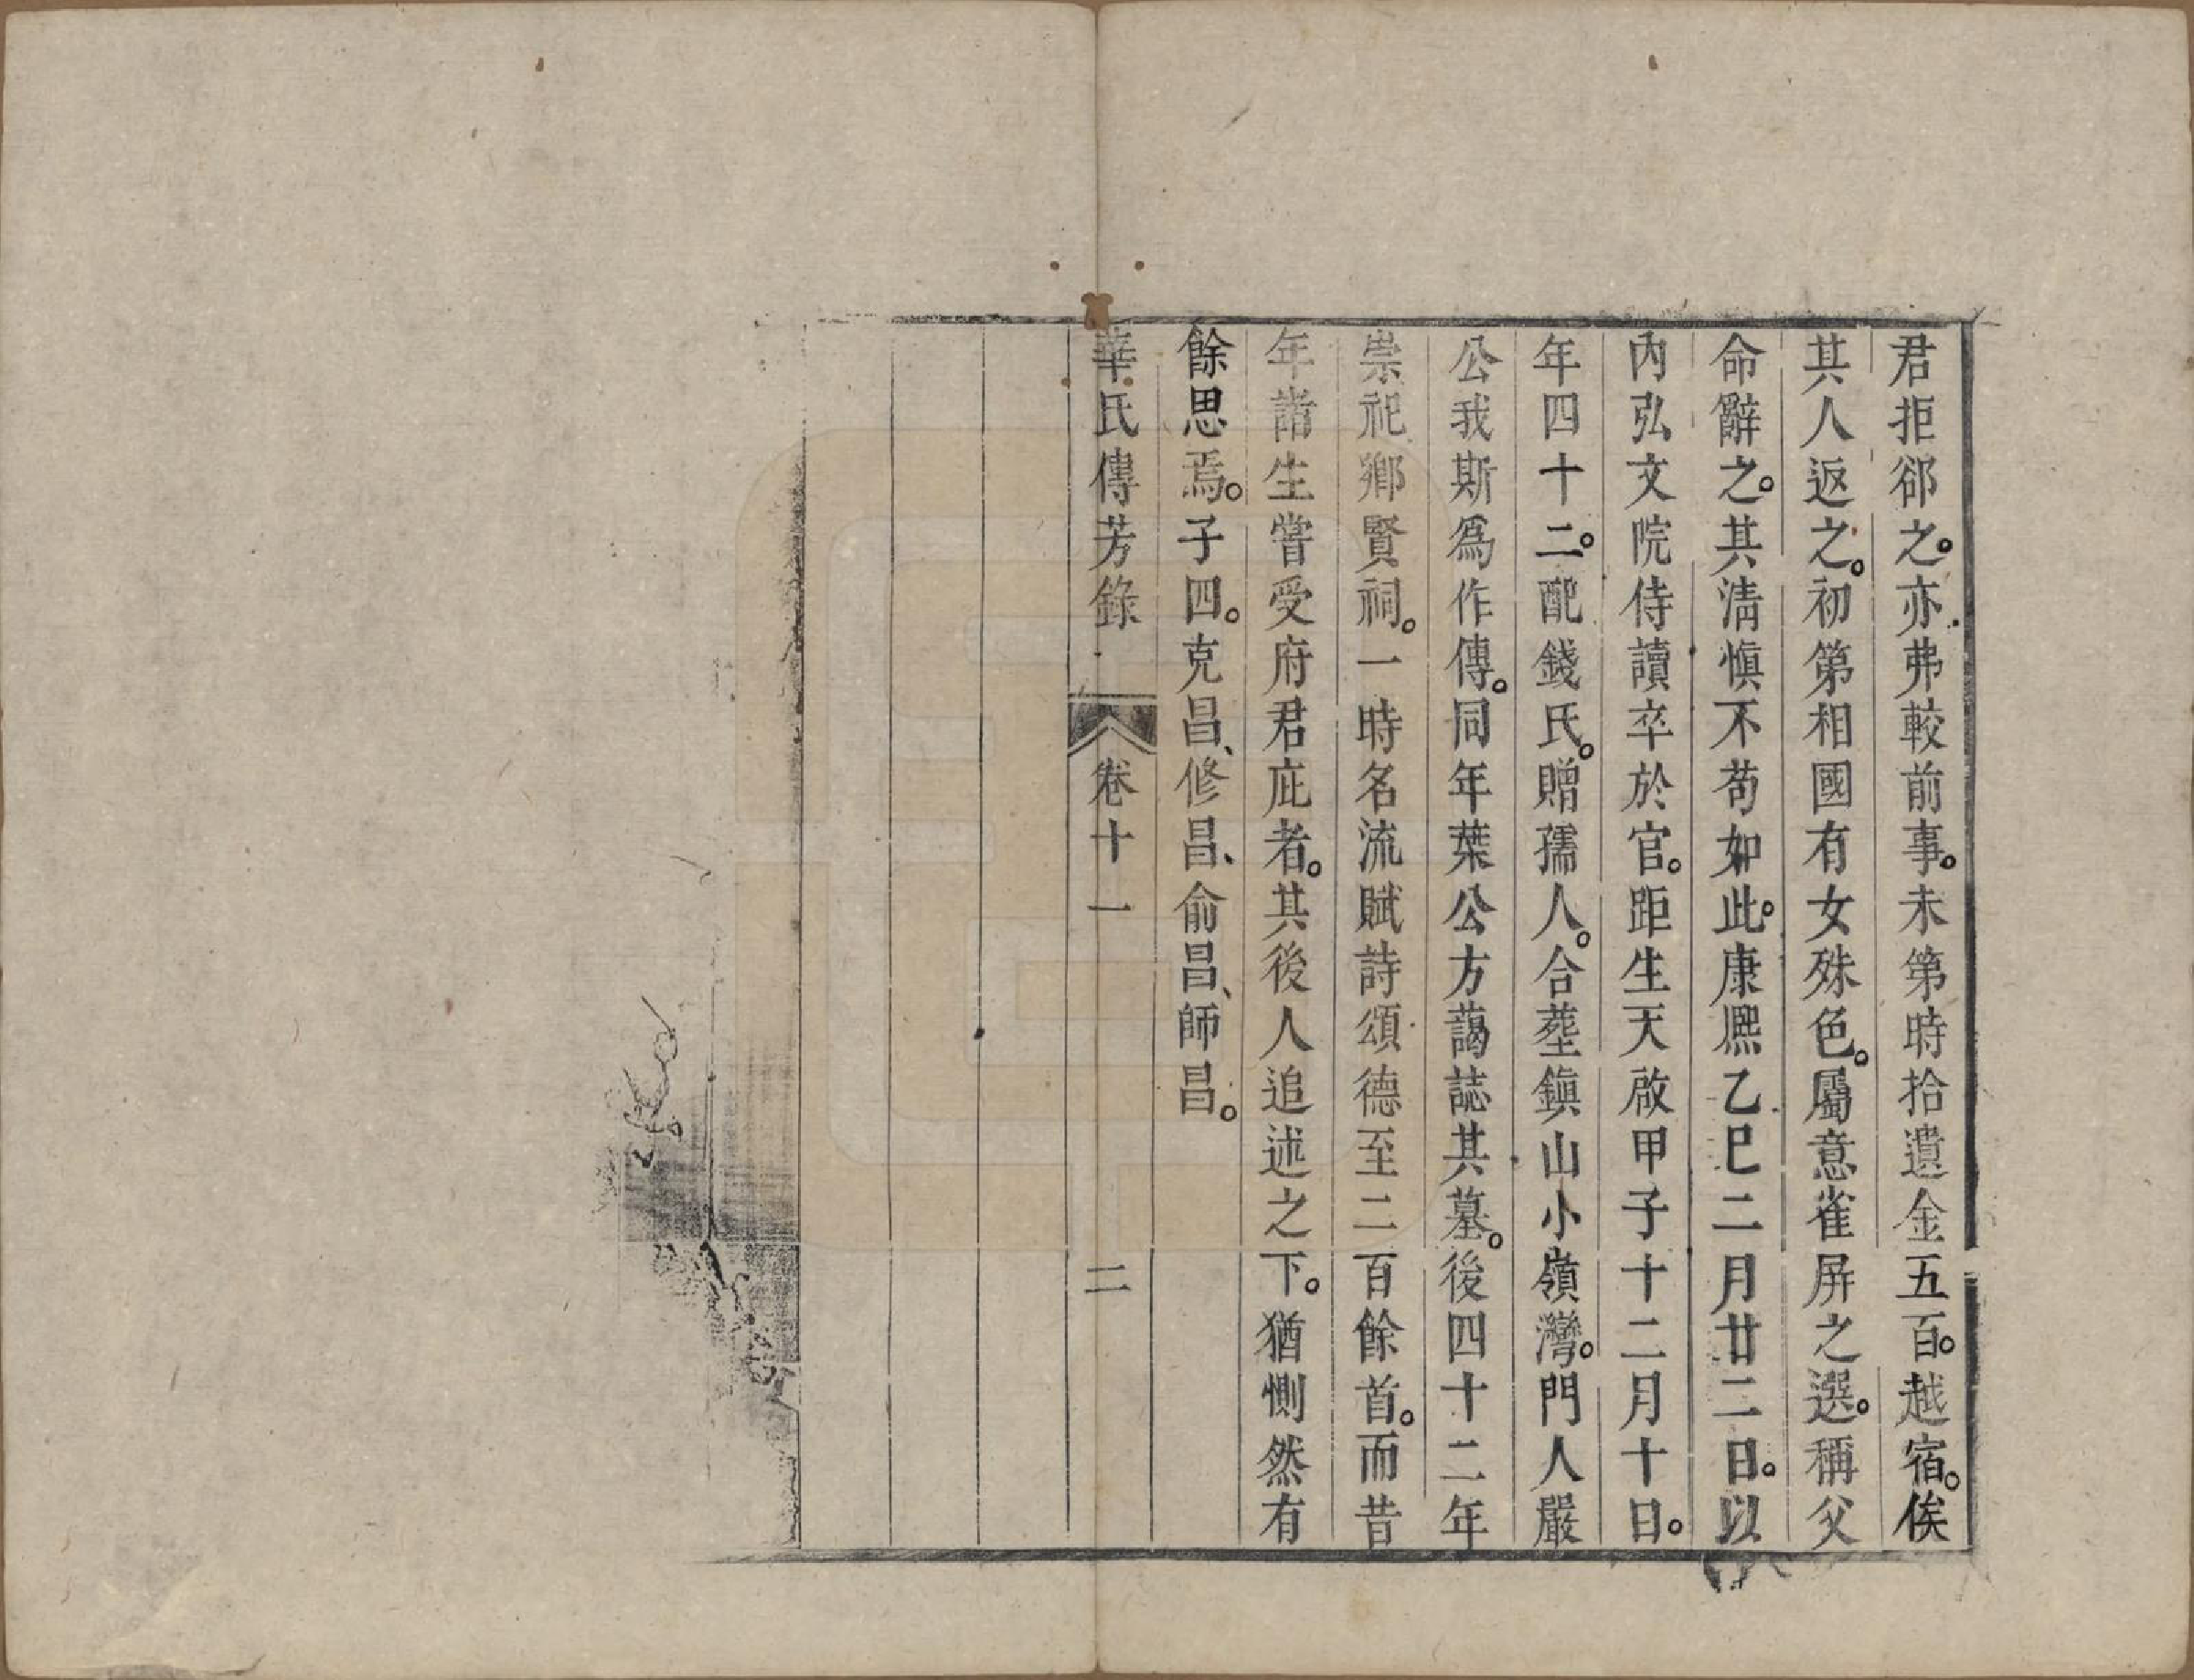 君拒郤之。亦弗較前事。未第時拾遺金五百。越宿。俟
其人返之。初第相國有女殊色。屬意雀屏之選。稱父
命辭之。其淸愼不苟如此。康熈乙巳二月廿二日。以
內弘文院侍讀卒於官。距生天啟甲子十二月十日。
年四十二。配錢氏。贈孺人。合塟鎭山小嶺灣。門人嚴
公我斯爲作傳。同年葉公方藹誌其墓。後四十二年
崇祀鄉賢祠。一時名流賦詩頌德至二百餘首。而昔
年諸生嘗受府君庇者。其後人追述之下。猶惻然有
餘思焉。子四。克昌、修昌、俞昌、師昌。
華氏傳芳錄 卷十一 二